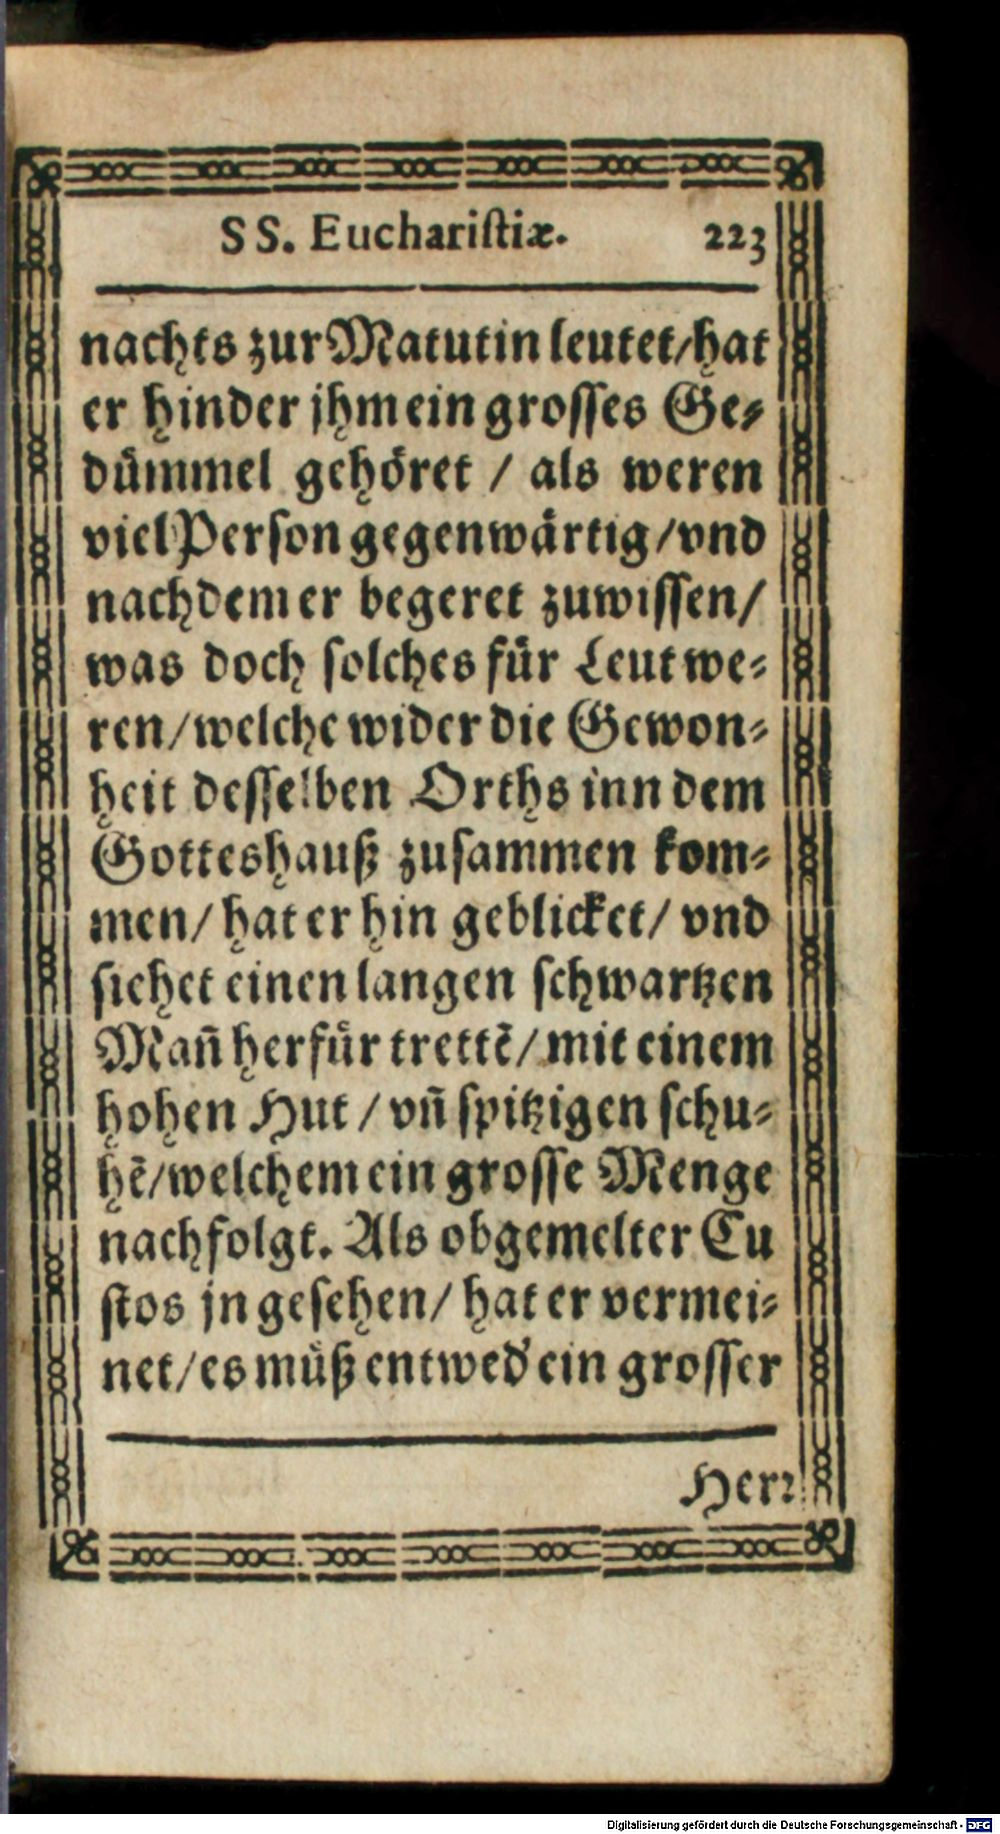 SS. Euchariſtiæ. 223
nachts zur Matutin leutet/hat
er hinder jhm ein groſſes Ge-
dümmel gehöret / als weren
viel Perſon gegenwärtig/vnd
nachdem er begeret zuwiſſen/
was doch ſolches für Leut we-
ren/welche wider die Gewon-
heit deſſelben Orths inn dem
Gotteshauß zuſammen kom-
men/ hat er hin geblicket/ vnd
ſiehet einen langen ſchwartzen
Mañ herfür trettẽ/ mit einem
hohen Hut / vñ ſpitzigen ſchu-
hẽ/welchem ein groſſe Menge
nachfolgt. Als obgemelter Cu
ſtos jn geſehen/ hat er vermei-
net/es müß entwed' ein groſſer
Herꝛ
Digitalisierung gefördert durch die Deutsche Forschungsgemeinschaft - DFG